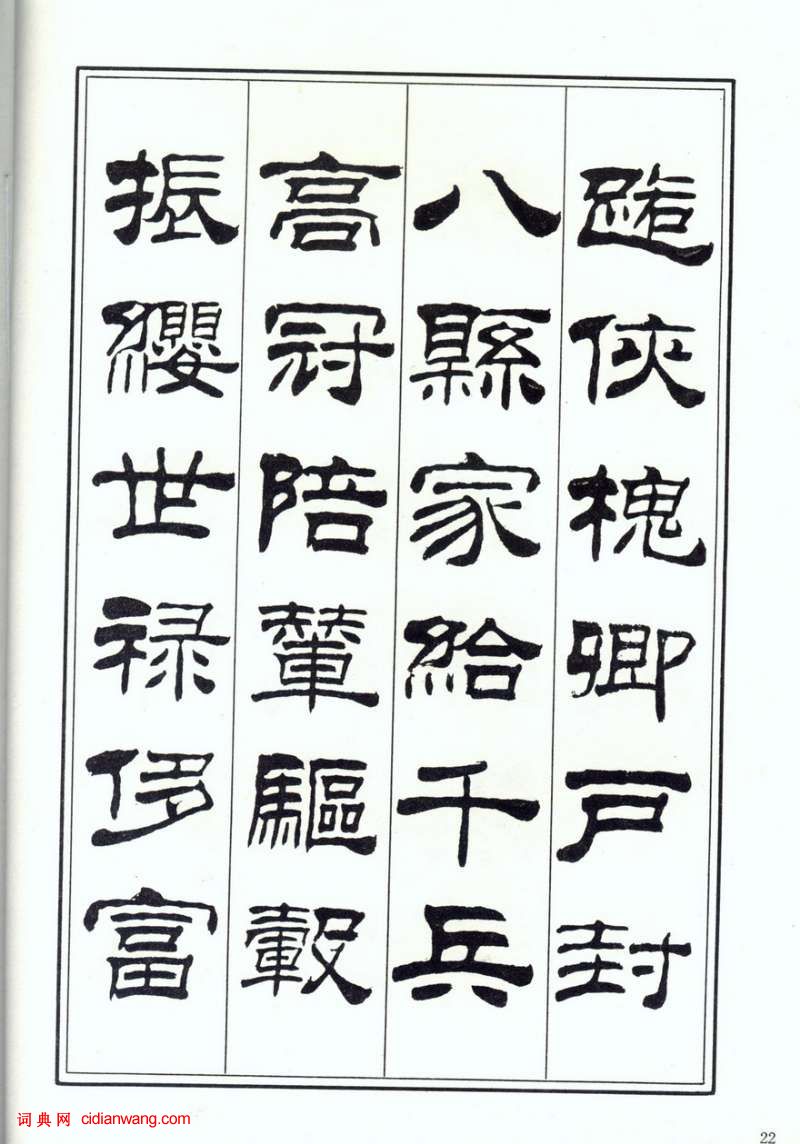 路俠槐卿戸封
八縣家給千兵
高冠陪輦驅轂
振纓世禄侈富
词典网 cidianwang.com
22